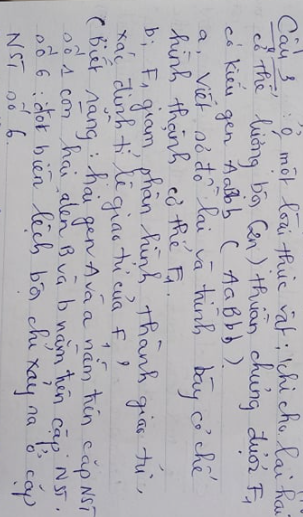 Câu 3 : Ở một loài thực vật, khi cho lai hai
cơ thể lưỡng bội (2n) thuần chủng được F1
có kiểu gen AaBbb (AaBbb)
a, Viết sơ đồ lai và trình bày cơ chế
hình thành cơ thể F1.
b, F1 giảm phân hình thành giao tử,
xác định tỉ lệ giao tử của F1
(Biết rằng: hai gen A và a nằm trên cặp NST
số 1 còn hai alen B và b nằm trên cặp NST
số 6; đột biến lệch bội chỉ xảy ra ở cặp
NST số 6.